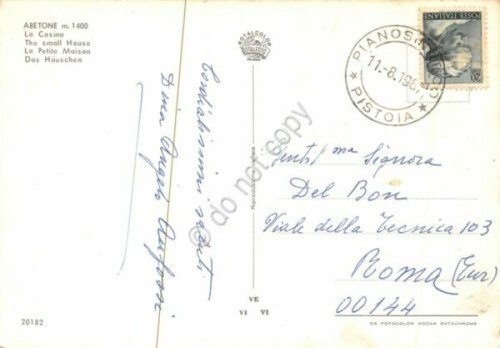 ABETONE m. 1400
La Casina
The small House
La Petite Maison
Das Hauschen
ROTALCOLOR
POSTE ITALIANE
PISTOIA
11-8.196
Cordialissimi saluti
Dina Angelo
Gent/ma Signora
Del Bon
Viale della Tecnica 103
Roma (Eur)
00144
do not copy
20182
VE
VI VI
DA FOTOCOLOR KODAK EKTACHROME